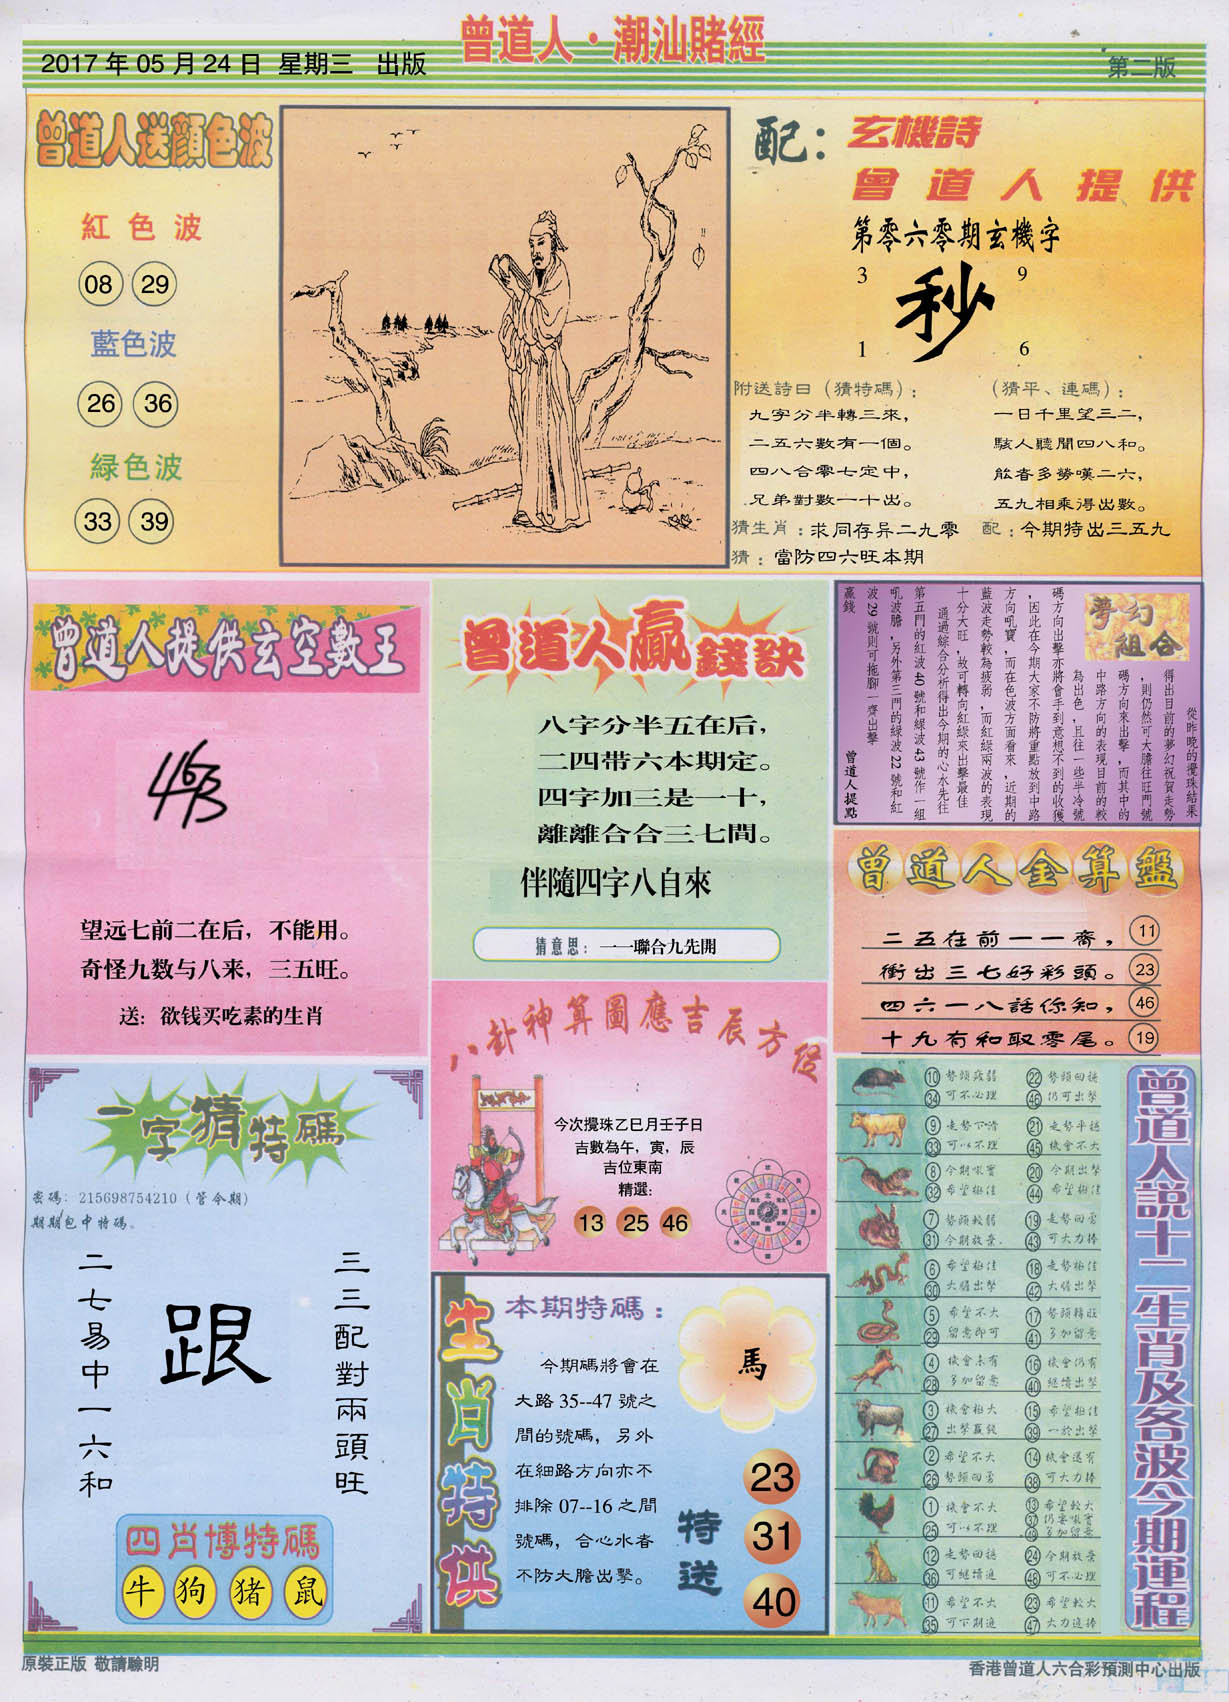 曾道人·潮汕賭經
2017 年 05 月 24 日 星期三 出版
第二版
曾道人送顏色波
紅色波
08 29
藍色波
26 36
緑色波
33 39
配：
玄機詩
曾道人提供
第零六零期玄機字
3 9
秒
1 6
附送詩曰（猜特碼）：
九字分半轉三來，
二五六數有一個。
四八合零七定中，
兄弟對數一十出。
（猜平、連碼）：
一日千里望三二，
駭人聽聞四八和。
能者多勞嘆二六，
五九相乘得出數。
猜生肖：求同存异二九零
配：今期特出三五九
猜：當防四六旺本期
曾道人提供玄空數王
望远七前二在后，不能用。
奇怪九数与八来，三五旺。
送：欲钱买吃素的生肖
曾道人贏錢訣
八字分半五在后，
二四带六本期定。
四字加三是一十，
離離合合三七間。
伴隨四字八自來
猜意思：一一聯合九先開
夢幻組合
從昨晚的攪珠結果
得出目前的夢幻祝賀走勢
，則仍然可大膽往旺門號
碼方向來出擊，而其中的
中路方向的表現目前的較
為出色，且往一些半冷號
碼方向出擊亦將會手到意想不到的收獲
，因此在今期大家不防將重點放到中路
方向吼寶，而在色波方面看來，近期的
藍波走勢較為疲弱，而紅緑兩波的表現
十分大旺，故可轉向紅緑來出擊最佳
通過綜合分析得出今期的心水先往
第五門的紅波 40 號和緑波 43 號作一組
吼波膽，另外第三門的緑波 22 號和紅
波 29 號則可拖脚一齊出擊
贏錢
曾道人提點
曾道人金算盤
二五在前一一齋， 11
衝出三七好彩頭。 23
四六一八話你知， 46
十九有和取零尾。 19
八卦神算圖應吉辰方位
今次攪珠乙巳月壬子日
吉數為午，寅，辰
吉位東南
精選：
13 25 46
一字猜特碼
密碼：215698754210（管今期）
期期包中特碼。
二七易中一六和
跟
三三配對兩頭旺
四肖博特碼
牛 狗 猪 鼠
生肖特供
本期特碼：
今期碼將會在
大路 35--47 號之
間的號碼，另外
在細路方向亦不
排除 07--16 之間
號碼，合心水者
不防大膽出擊。
馬
特送
23
31
40
曾道人説十二生肖及各波今期運程
10 勢頭疲弱 22 勢頭回穩
34 可不必理 46 仍可出擊
9 走勢下滑 21 走勢平穩
33 可以不理 45 機會不大
8 今期吼寶 20 今期出擊
32 希望極佳 44 希望極佳
7 勢頭較弱 19 走勢回勇
31 今期放棄 43 可大力捧
6 希望極佳 18 走勢極佳
30 大膽出擊 42 大膽出擊
5 希望不大 17 勢頭轉旺
29 留意即可 41 多加留意
4 機會未有 16 機會仍有
28 多加留意 40 繼續出擊
3 機會極大 15 希望極佳
27 出擊贏錢 39 一於出擊
2 希望不大 14 機會還有
26 勢頭回勇 38 可大力捧
1 機會不大 13 希望較大
25 可以不理 37 仍要吼寶
49 多加留意
12 走勢回穩 24 今期放棄
36 可繼續追 48 可不必理
11 希望不大 23 希望較大
35 可下期追 47 大力追捧
原裝正版 敬請驗明
香港曾道人六合彩預測中心出版